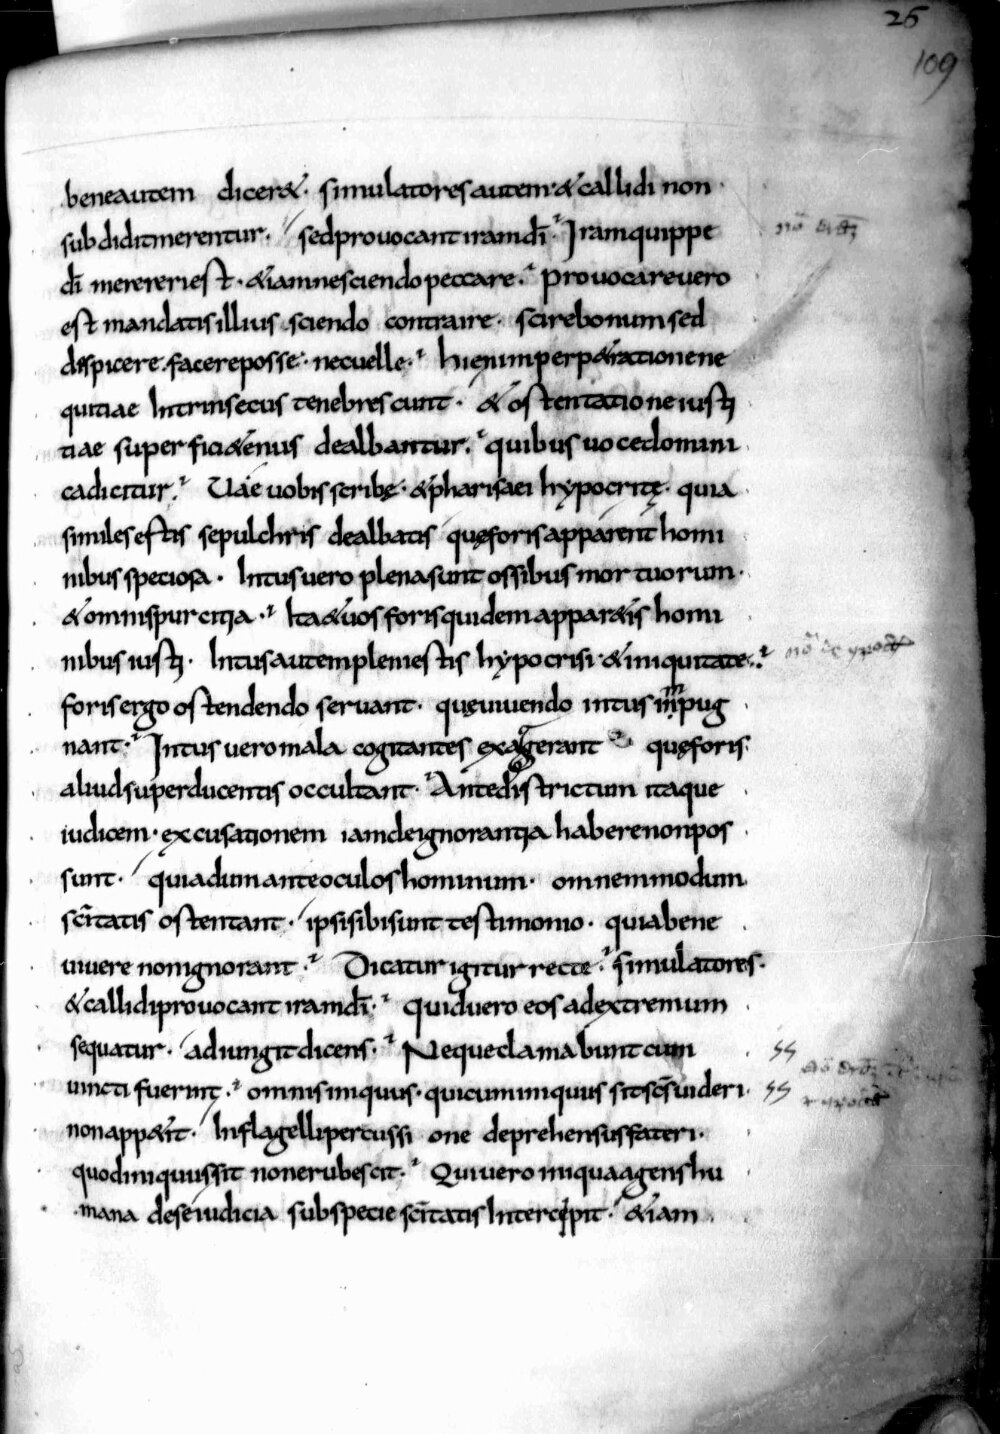 26
109
beneautem diceret&. simulatores autem & callidi non
subdidit merentur. sed provocant iram dī. Iram quippe
dī mereri est. &iam nesciendo peccare. provocare vero
est mandatis illius sciendo contraire. scire bonum sed
despicere. facere posse. nec velle. hi enim perp&ratione ne
quitiae Intrinsecus tenebrescunt. & ostentatione iusti
tiae superficiet&enus dealbantur. quibus voce domini
ca dicitur. Uae vobis scribę. & pharisaei hypocritę. quia
similes estis sepulchris dealbatis quę foris apparent homi
nibus speciosa. Intus vero plena sunt ossibus mortuorum.
& omni spurcitia. Ita & vos foris quidem appar&is homi
nibus iusti. Intus autem pleni estis hypocrisi & iniquitate.
foris ergo ostendendo servant. quę vivendo intus impug
nant. Intus vero mala cogitantes exagerant quę foris
aliud superducentes occultant. Ante districtum itaque
iudicem. excusationem iam de ignorantia habere non pos
sunt. quia dum ante oculos hominum. omnem modum
scītatis ostentant. ipsi sibi sunt testimonio. quia bene
vivere non ignorant. Dicatur igitur recte. simulatores.
& callidi provocant iram dī. Quid vero eos ad extremum
sequatur. adiungit dicens. Neque clamabunt cum
vincti fuerint. omnis iniquus. qui cum iniquus sit scs videri
non app&it. In flagelli percussione deprehensus fateri.
quod iniquus sit non erubescit. Qui vero iniqua agens hu
mana de se iudicia sub specie scītatis Intercipit. &iam